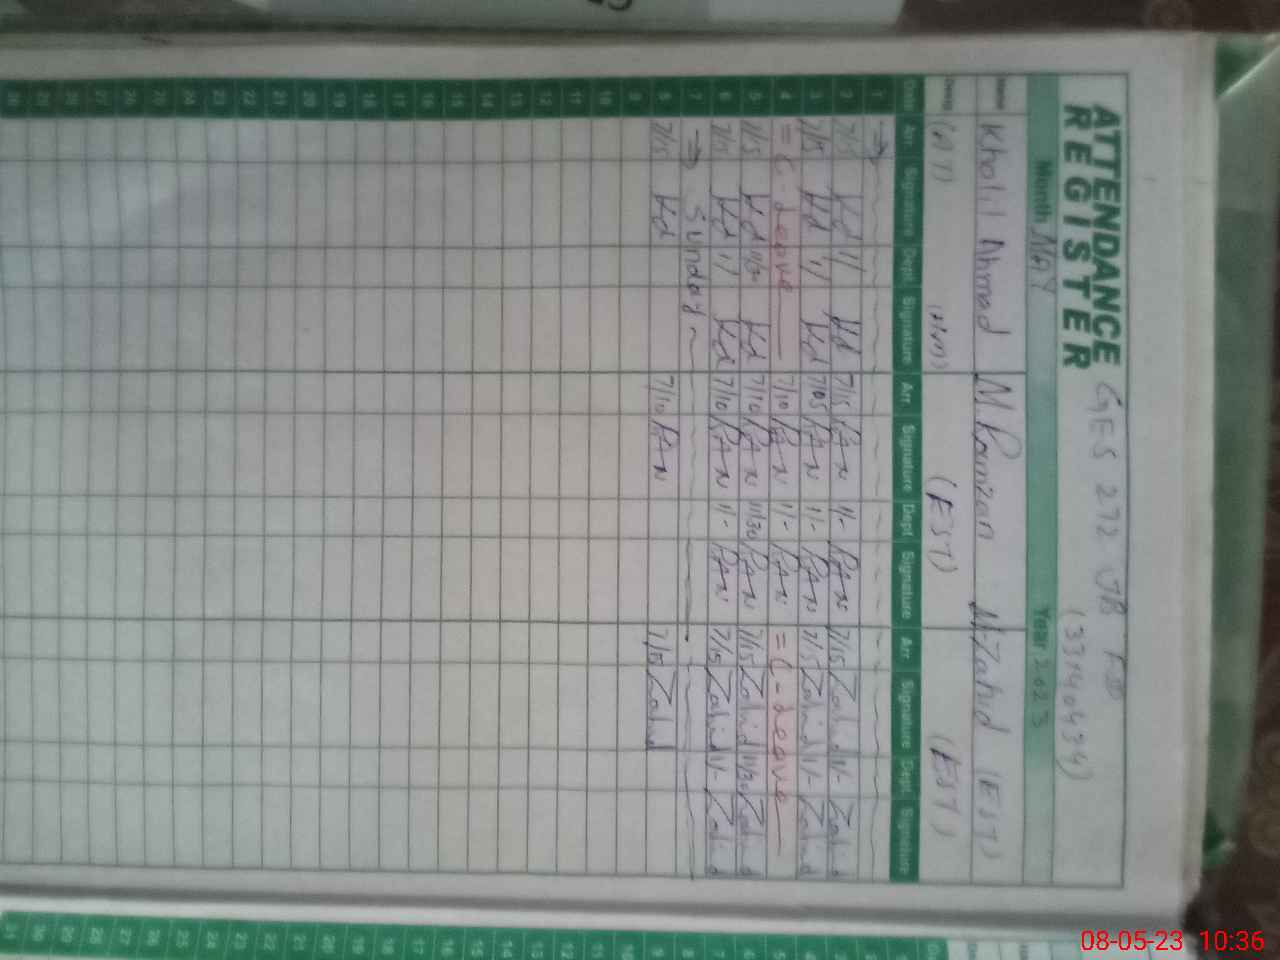 ATTENDANCE REGISTER GES 272 JB FSD
(33140494)
Month MAY Year 2023
Name Khalil Ahmad M. Ramzan M.Zahid (EST)
(AT) (H.M) (EST) (EST)
Date Arr. Signature Dept. Signature Arr. Signature Dept. Signature Arr. Signature Dept. Signature
1
2 7/15 Kd 11/ Kd 7/15 RAN 11/- RAN 7/15 Zahid 11/- Zahid
3 7/15 Kd 11 Kd 7/05 RAN 11/- RAN 7/15 Zahid 11/- Zahid
4 = C-Leave 7/10 RAN 11/- RAN = C-Leave
5 7/15 Kd 11/30 Kd 7/10 RAN 11/30 RAN 7/15 Zahid 11/30 Zahid
6 7/15 Kd 11 Kd 7/10 RAN 11/- RAN 7/15 Zahid 11/- Zahid
7 Sunday
8 7/15 Kd 7/10 RAN 7/15 Zahid
9
10
11
12
13
14
15
16
17
18
19
20
21
22
23
24
25
26
27
28
29
30
08-05-23 10:36